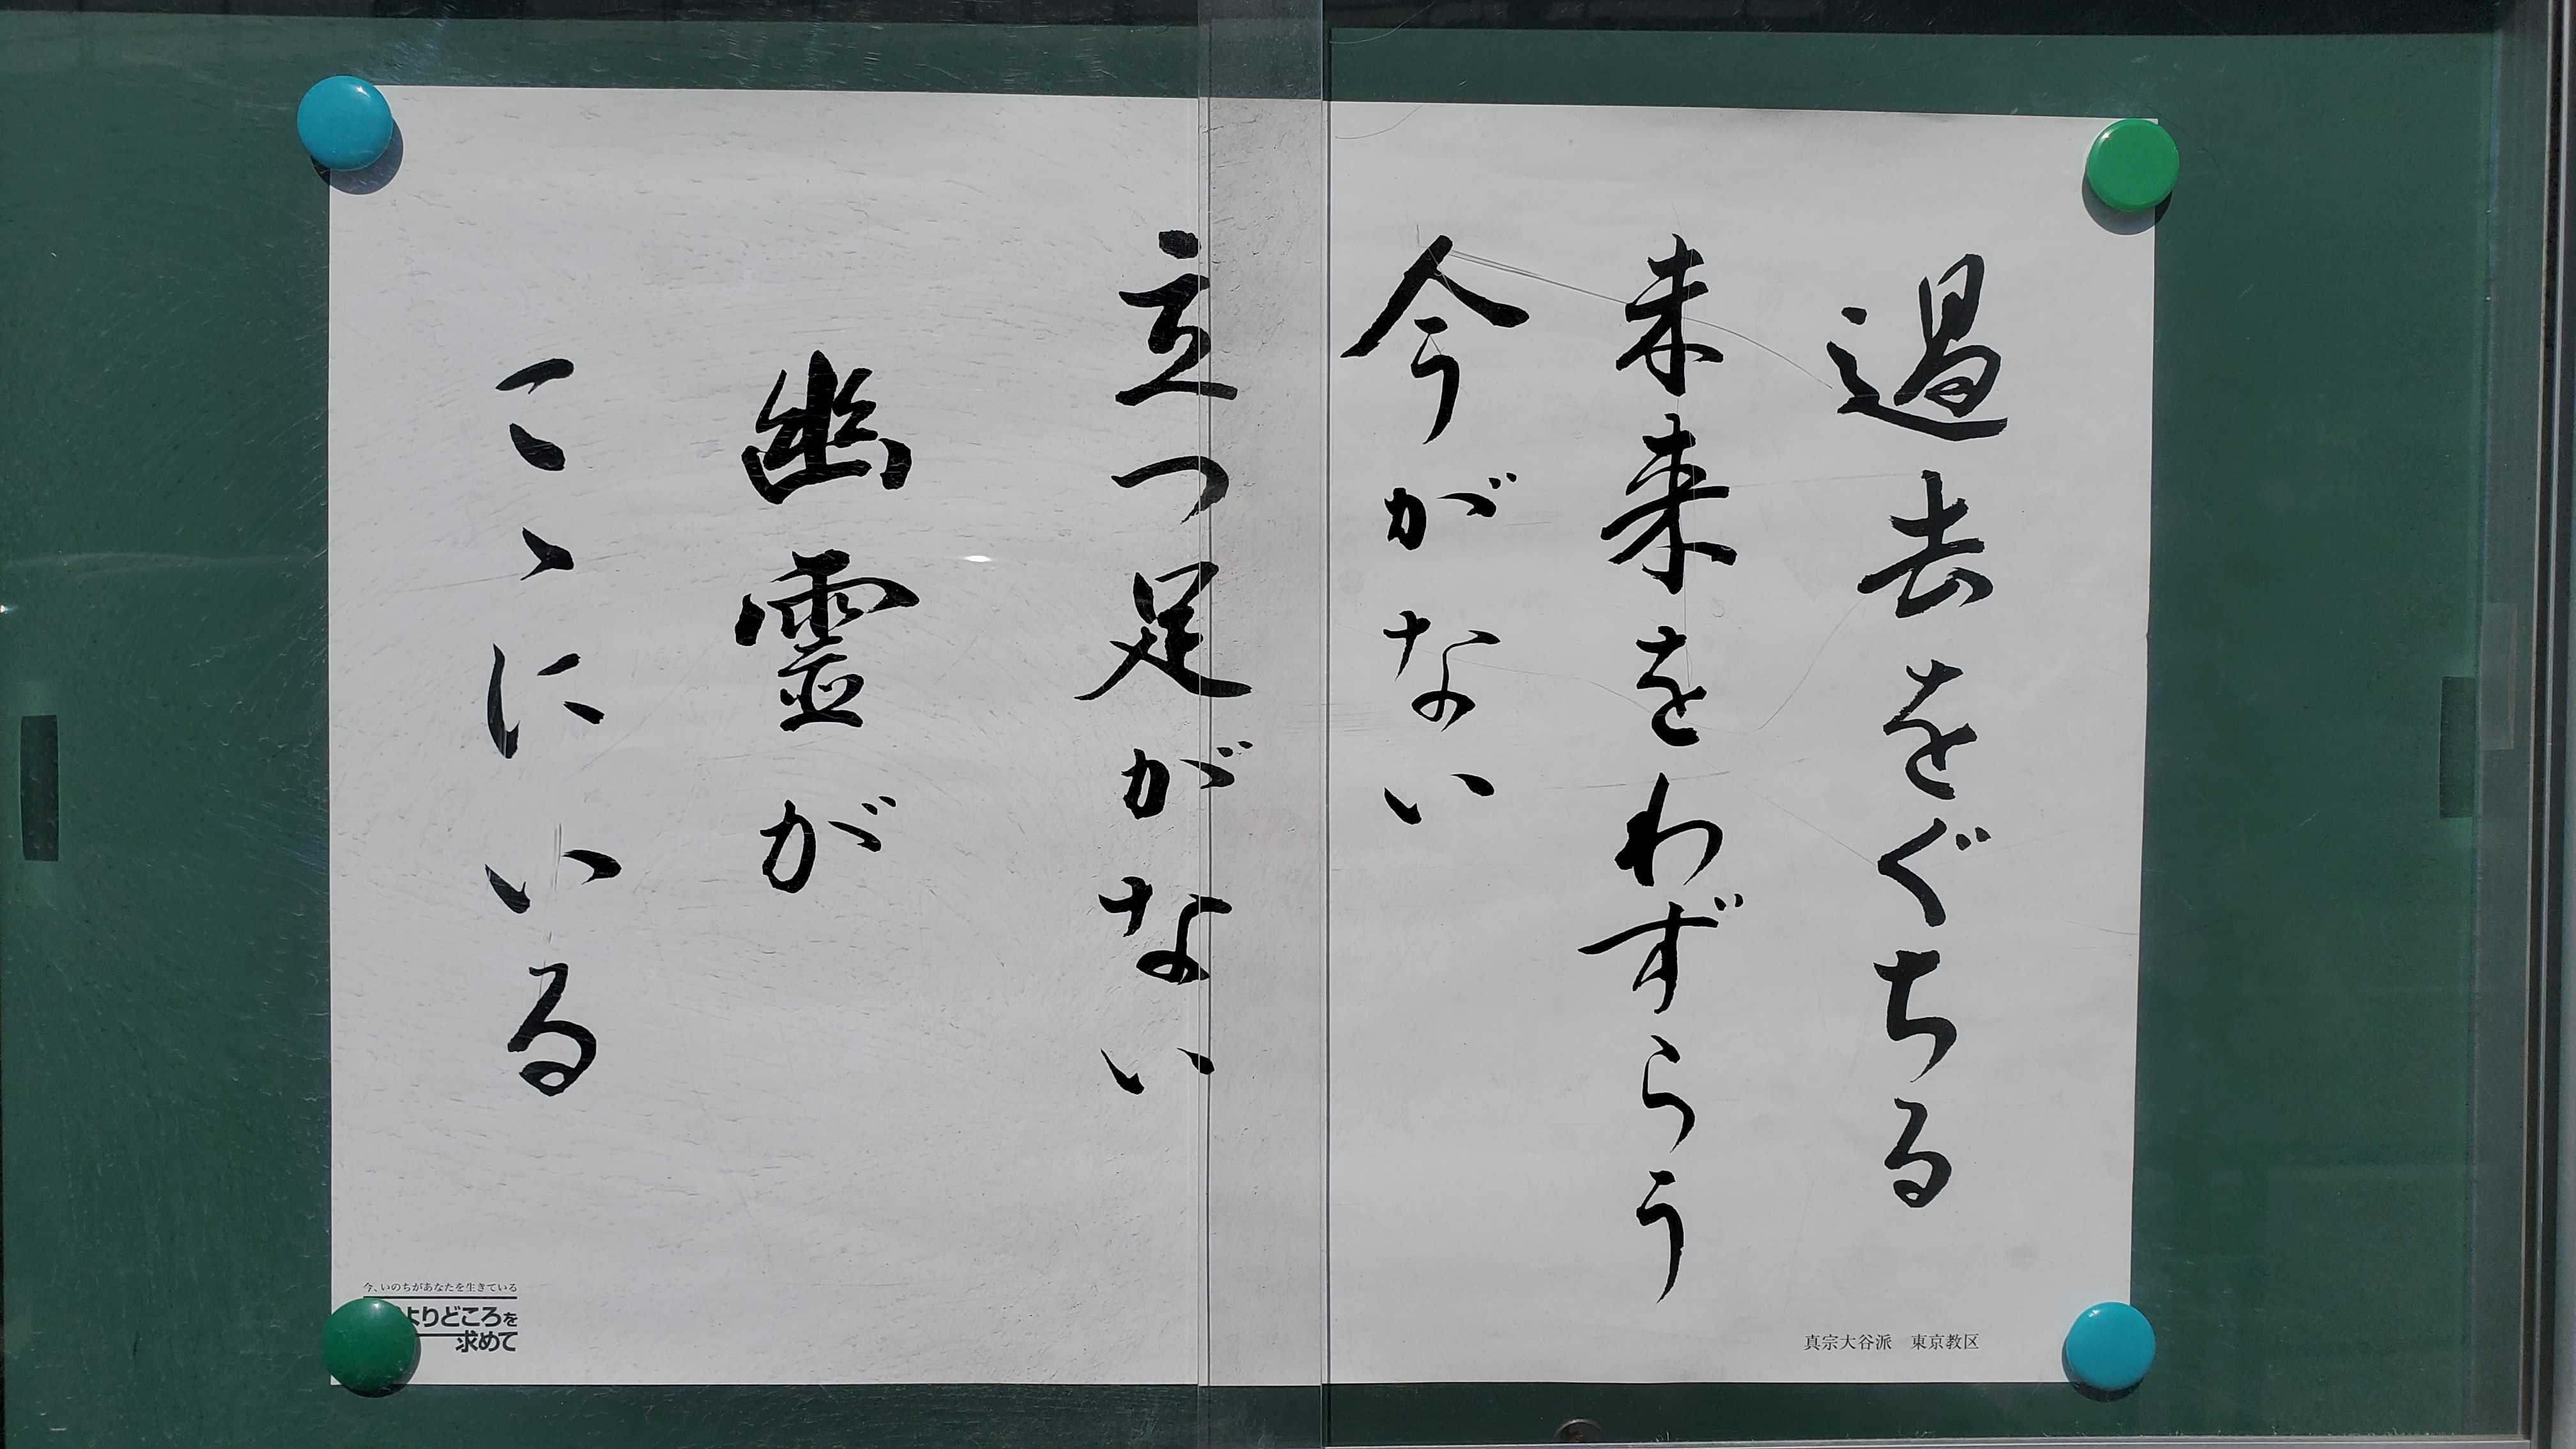 過去をぐちる
未来をわずらう
今がない
立つ足がない
幽霊が
こゝにいる
真宗大谷派　東京教区
今、いのちがあなたを生きている
よりどころを
求めて